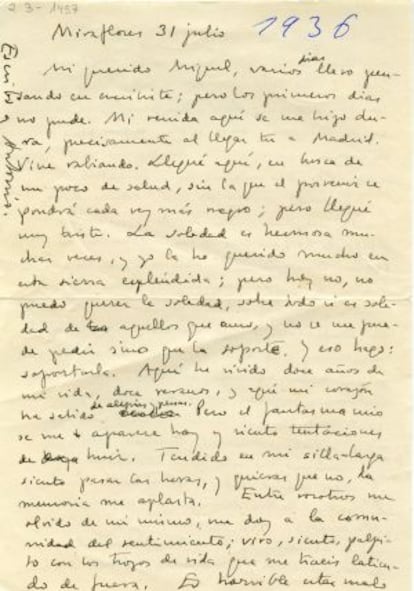 23-1457
Miraflores 31 julio 1936
Escribe a Antonio.
Mi querido Miguel, varios días llevo pen-
sando en escribirte; pero los primeros días
no pude. Mi venida aquí se me hizo du-
ra, precisamente al llegar tu a Madrid.
Vine rabiando. Llegué aquí, en busca de
un poco de salud, sin la que el porvenir se
pondrá cada vez más negro; pero llegué
muy triste. La soledad es hermosa mu-
chas veces, y yo la he querido mucho en
esta sierra espléndida; pero hoy no, no
puedo querer la soledad, sobre todo si es sole-
dad de aquellos que amo, y no se me pue-
de pedir sino que la soporte. Y eso hago:
soportarla. Aquí he vivido doce años de
mi vida, doce veranos, y aquí mi corazón
ha sabido de alegrías y penas. Pero el fantasma mio
se me aparece hoy y siento tentaciones
de huir. Tendido en mi silla-larga
siento pasar las horas, y quieras que no, la
memoria me aplasta. Entre vosotros me
olvido de mi mismo, me doy a la comu-
nidad del sentimiento; vivo, siento, palpi-
to con los trozos de vida que me traeis latien-
do de fuera. Es horrible estar malo